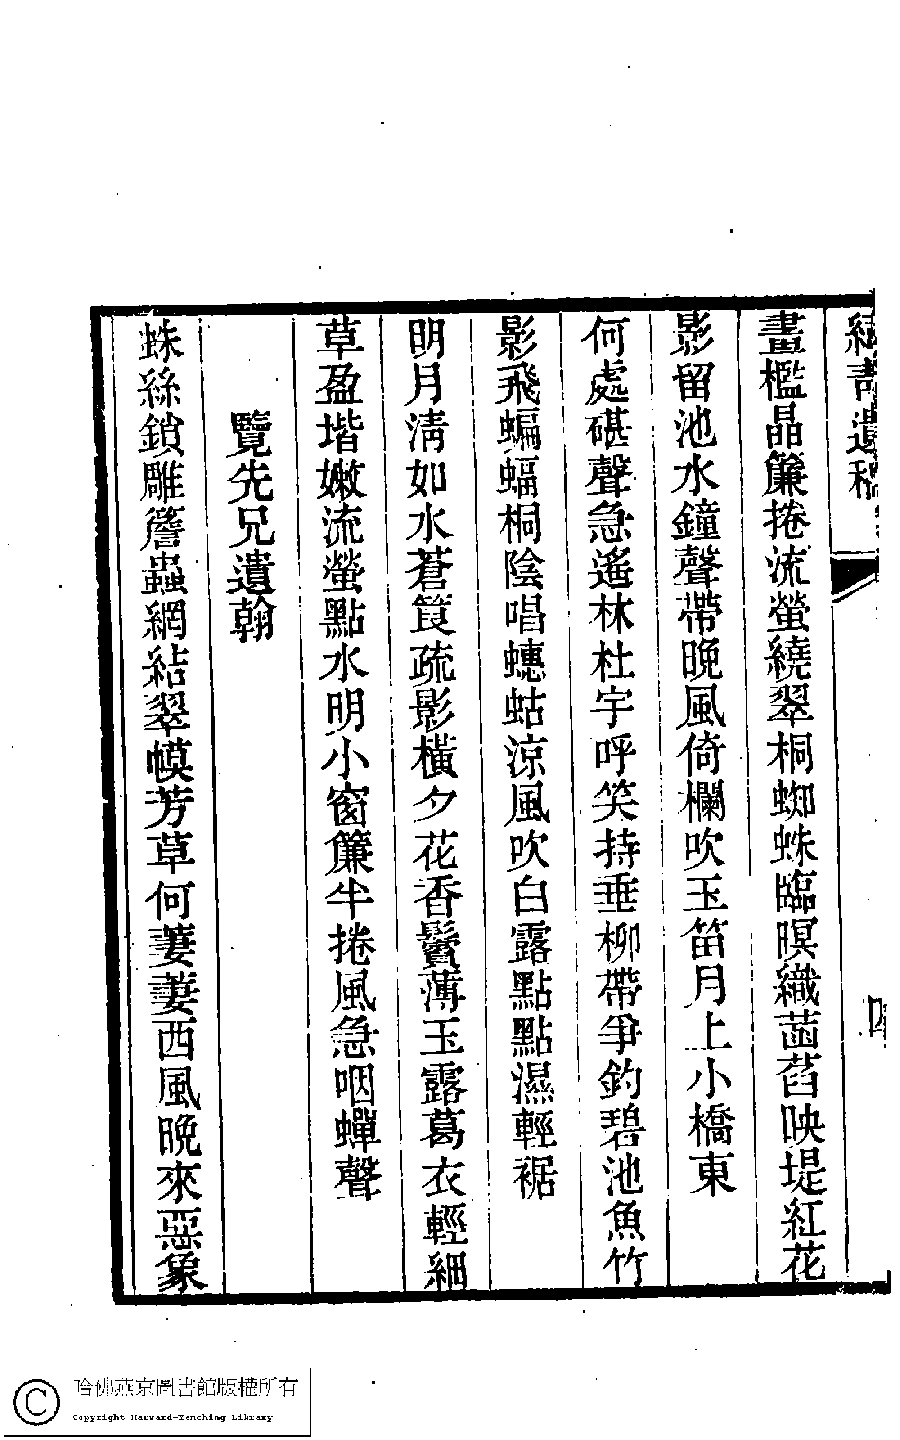 畫檻晶簾捲流螢繞翠桐蜘蛛臨暝織菡萏映堤紅花
影留池水鐘聲帶晚風倚欄吹玉笛月上小橋東
何處碪聲急遙林杜宇呼笑持垂柳帶爭釣碧池魚竹
影飛蝙蝠桐陰唱蟪蛄涼風吹白露點點濕輕裾
明月淸如水蒼筤疏影橫夕花香鬢薄玉露葛衣輕細
草盈堦嫩流螢點水明小窗簾半捲風急咽蟬聲
覽先兄遺翰
蛛絲鎖雕簷蟲網結翠幙芳草何萋萋西風晩來惡象
遺稿
四
哈佛燕京圖書館版權所有
Copyright Harvard-Yenching Library